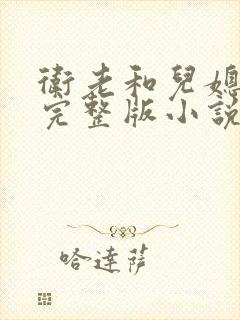 衛老和兒媳
完整版小說
哈達薩